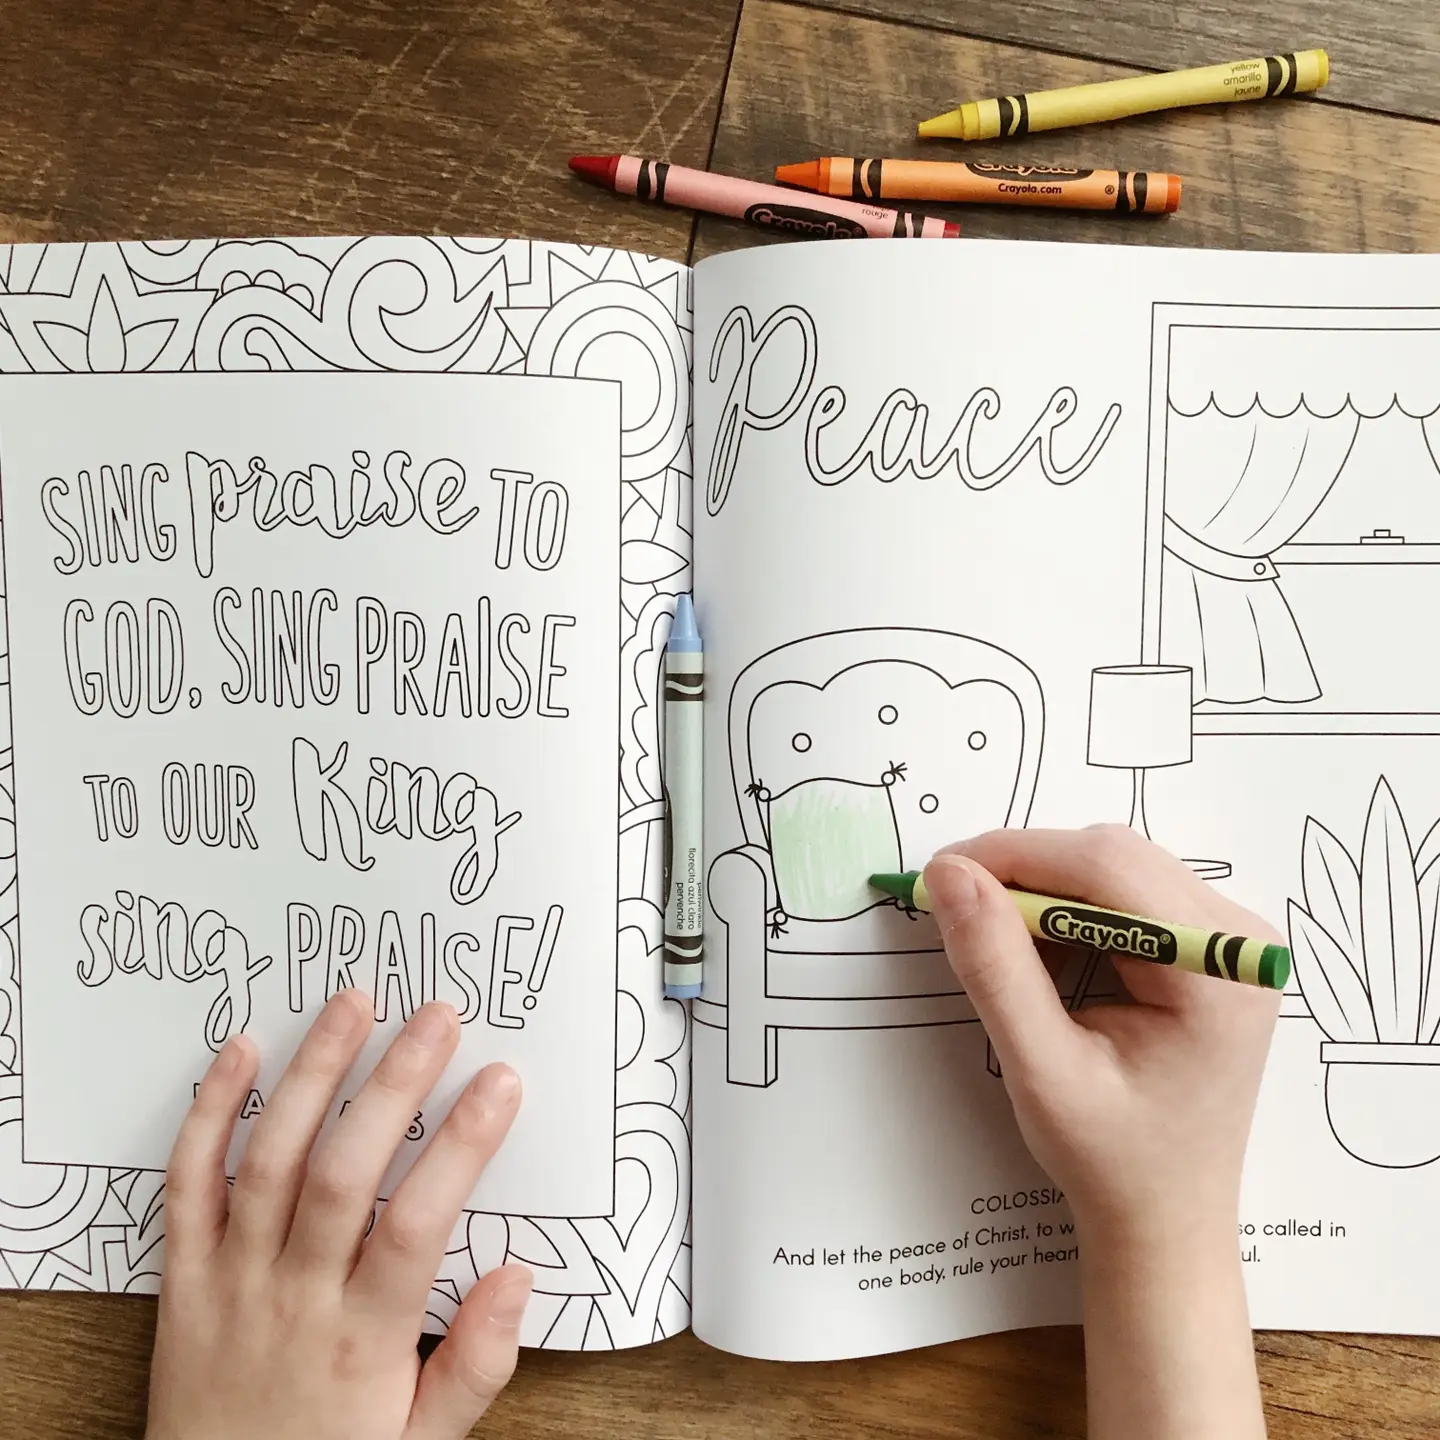 SING praise TO
GOD, SING PRAISE
TO OUR King
sing PRAISE!
Peace
COLOSSIA
And let the peace of Christ, to w so called in
one body, rule your heart ul.
yellow
amarillo
jaune
Crayola
Crayola.com
®
rouge
Crayola
periwinkle
florecita azul claro
pervenche
Crayola®